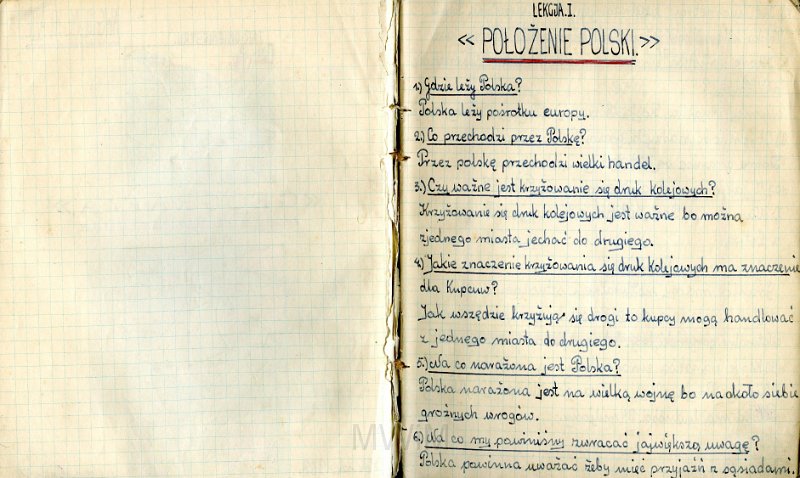 LEKCJA.I.
<< POŁOŻENIE POLSKI.>>
1.) Gdzie leży Polska?
Polska leży pośrotku europy.
2.) Co przechodzi przez Polskę?
Przez polskę przechodzi wielki handel.
3.) Czy ważne jest krzyżowanie się druk kolejowych?
Krzyżowanie się druk kolejowych jest ważne bo można
zjednego miasta jechać do drugiego.
4.) Jakie znaczenie krzyżowania się druk kolejowych ma znaczenie
dla Kupcuw?
Jak wszędzie krzyżują się drogi to kupcy mogą handlować
z jednego miasta do drugiego.
5.) Na co narażona jest Polska?
Polska narażona jest na wielką wojnę bo naokoło siebie
groźnych wrogów.
6.) Na co my powiniśmy zwracać jajwiększą uwagę?
Polska powinna uważać żeby mieć przyjaźń z sąsiadami.